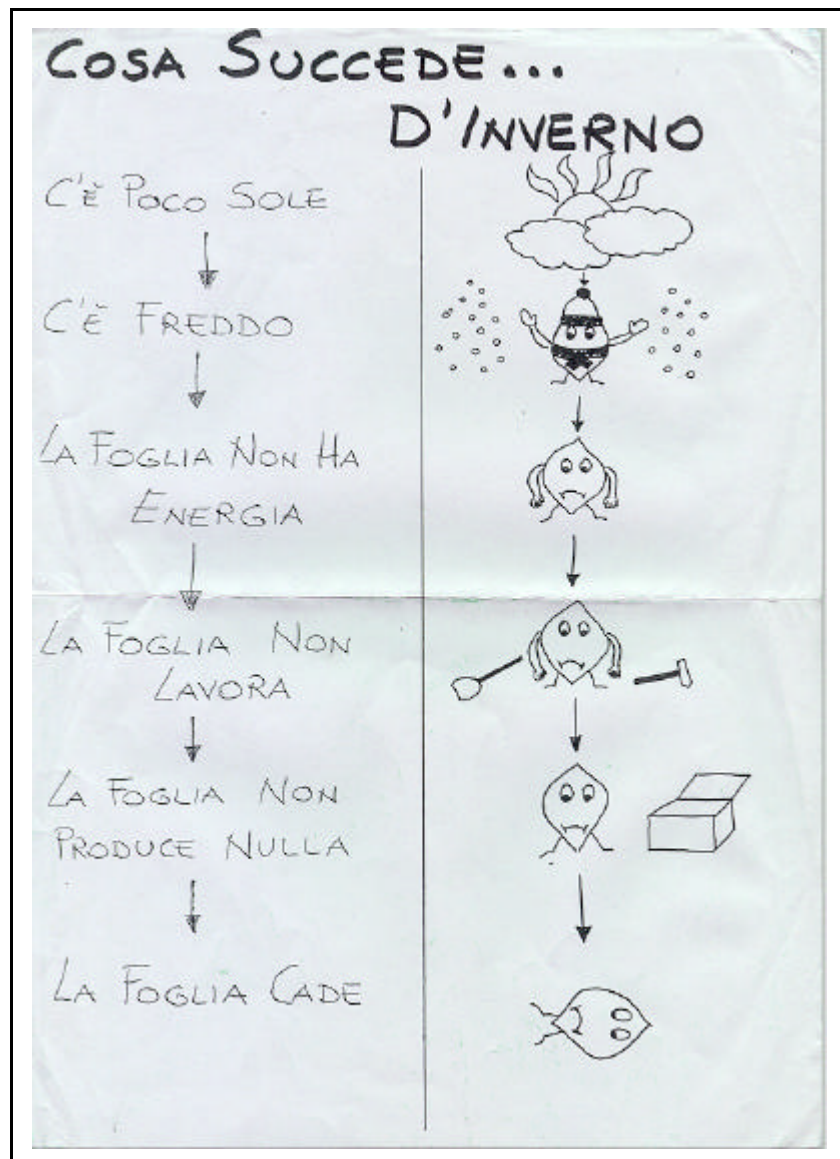 COSA SUCCEDE...
D'INVERNO
C'È POCO SOLE
C'È FREDDO
LA FOGLIA NON HA
ENERGIA
LA FOGLIA NON
LAVORA
LA FOGLIA NON
PRODUCE NULLA
LA FOGLIA CADE